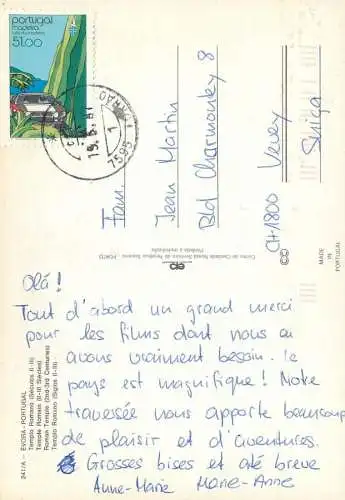 portugal
madeira
51.00
19.5.87
7595
1
Fam.
Jean Martin
Bld Charmontey 8
CH-1800 Vevey
Suiça
MADE
IN
PORTUGAL
PORTO
Proibida a reprodução
Olá!
Tout d'abord un grand merci
pour les films dont nous en
avons vraiment besoin. Le
pays est magnifique! Notre
traversée nous apporte beaucoup
de plaisir et d'aventures.
Grosses bises et até breve
Anne-Marie Marie-Anne
241/A - ÉVORA - PORTUGAL
Templo Romano (Séculos II-III)
Temple Romain (II-III Siècles)
Roman Temple (2nd-3rd Centuries)
Templo Romano (Siglos II-III)